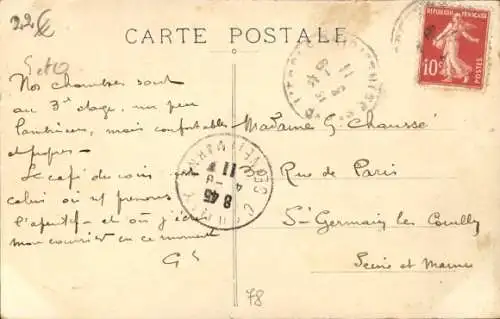 CARTE POSTALE
RÉPUBLIQUE FRANÇAISE
10c
POSTES
Nos chambres sont
au 3e étage, un peu
mais confortables
et propres -
Le café du coin est
celui où je prenais
l'apéritif - et où j'écris
mon courrier en ce moment
GS
Madame G. Chaussé
Rue de Paris
St Germain les Couilly
Seine et Marne
8 45
78